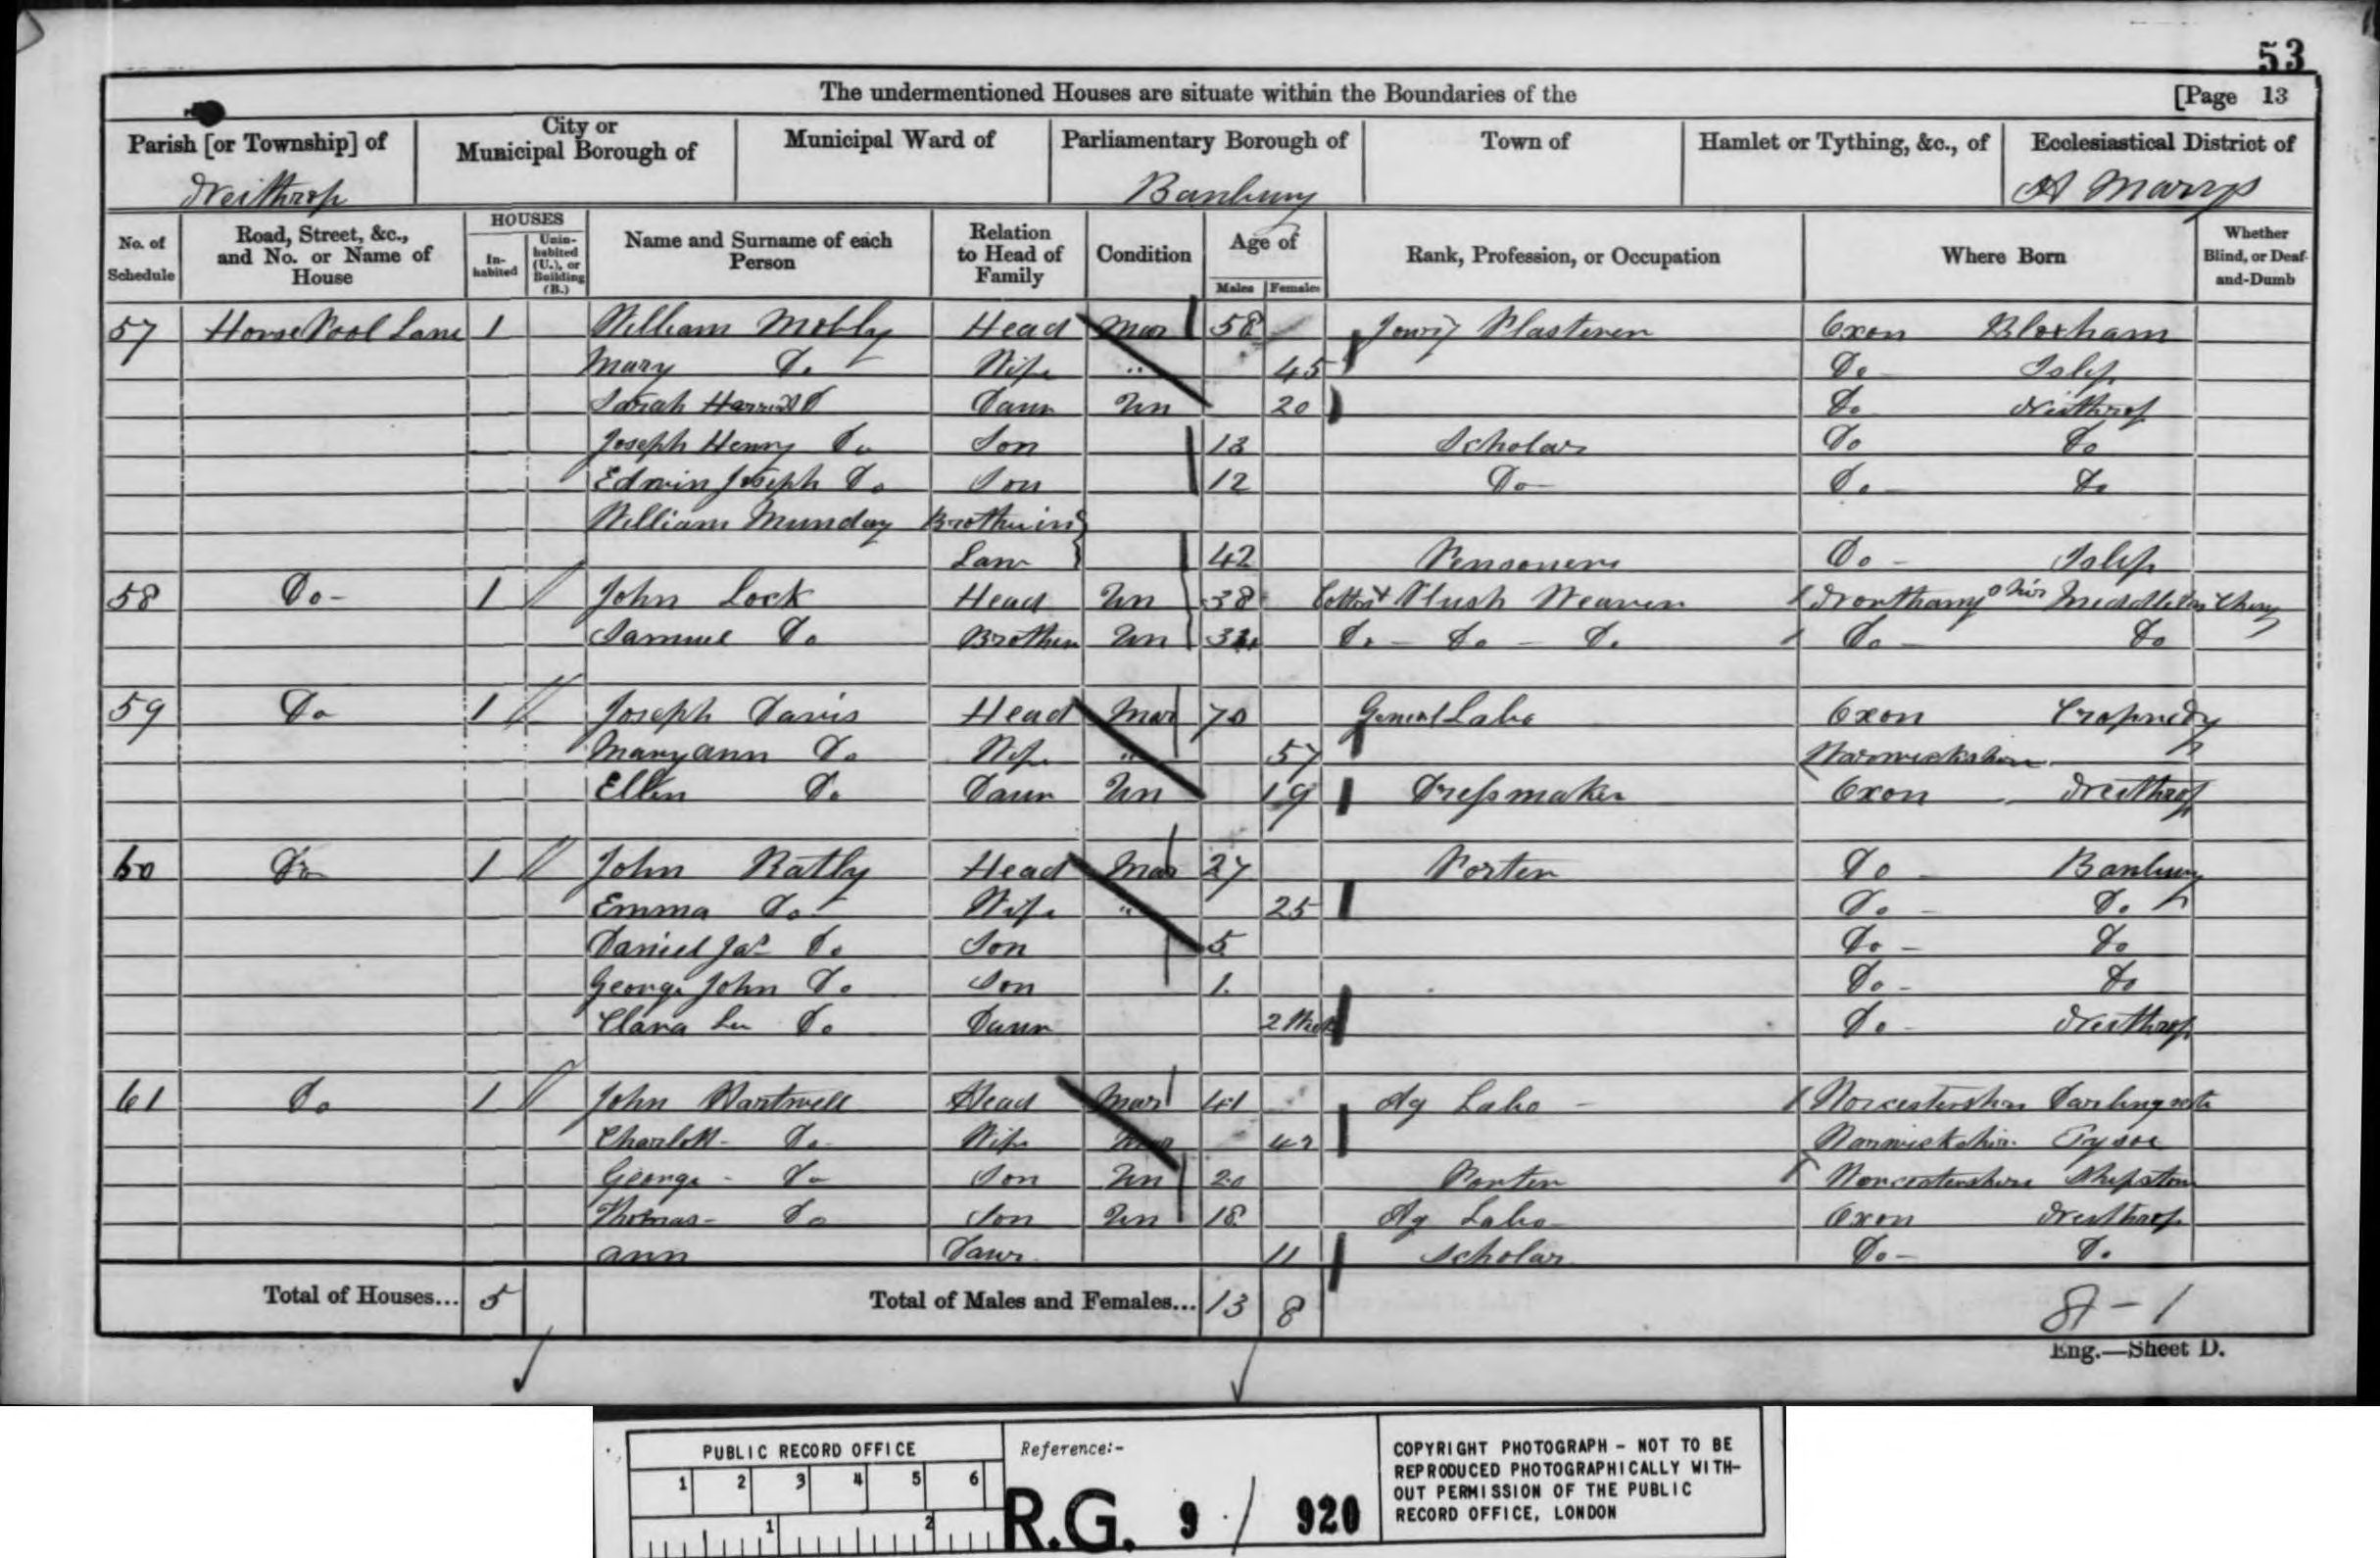 53
The undermentioned Houses are situate within the Boundaries of the [Page 13
Parish [or Township] of City or Municipal Borough of Municipal Ward of Parliamentary Borough of Town of Hamlet or Tything, &c., of Ecclesiastical District of
Neithrop Banbury St Marys
No. of Schedule Road, Street, &c., and No. or Name of House HOUSES In-habited Unin-habited (U.), or Building (B.) Name and Surname of each Person Relation to Head of Family Condition Age of Males Females Rank, Profession, or Occupation Where Born Whether Blind, or Deaf-and-Dumb
57 Horse Pool Lane 1 William Mobly Head Mar 58 Plasterer Oxon Bloxham
Mary Do Wife " 45 Do Islip
Sarah Do Daur Un 20 Do Neithrop
Joseph Henry Do Son 13 Scholar Do Do
Edwin Joseph Do Son 12 Do Do Do
William Munday Brother in
Law 42 Pensoner Do Islip
58 Do 1 John Lock Head Un 38 Plush Weaver Middleton Cheny
Samuel Do Brother Un Do Do Do Do Do
59 Do 1 Joseph Davis Head Mar 70 General Labo Oxon Cropredy
Maryann Do Wife " 57 Warwickshire
Ellen Do Daur Un 19 Dressmaker Oxon Neithrop
60 Do 1 John Ratly Head Mar 27 Porter Do Banbury
Emma Do Wife " 25 Do Do
Daniel Jas Do Son 5 Do Do
George John Do Son 1 Do Do
Clara Do Daur 2 Weeks Do Neithrop
61 Do 1 John Hartwell Head Mar 41 Ag Labo Worcestershire
Charlott Do Wife Mar 42 Warwickshire Tysoe
George Do Son Un 20 Porter Worcestershire Shipston
Thomas Do Son Un 18 Ag Labo Oxon Neithrop
Ann Daur 11 Scholar Do Do
Total of Houses... 5 Total of Males and Females... 13 8
8-1
Eng.—Sheet D.
PUBLIC RECORD OFFICE
1 2 3 4 5 6
1 2
Reference:-
R.G. 9 / 920
COPYRIGHT PHOTOGRAPH - NOT TO BE
REPRODUCED PHOTOGRAPHICALLY WITH-
OUT PERMISSION OF THE PUBLIC
RECORD OFFICE, LONDON